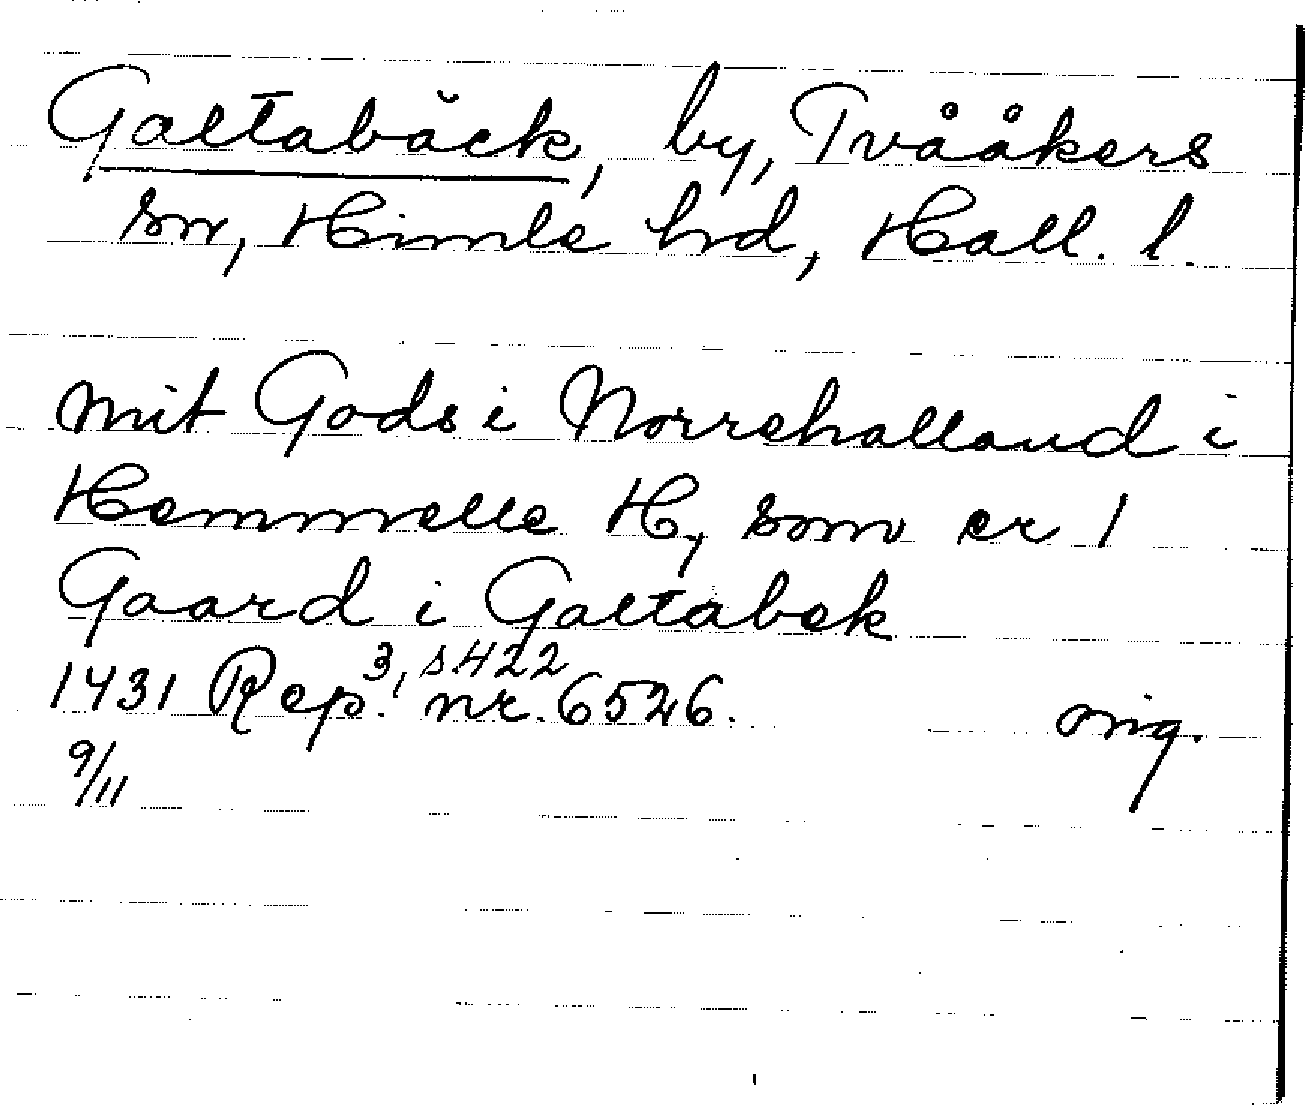 Galtabäck, by, Tvååkers
sn, Himle hd, Hall. l.
mit Gods i Norrehalland i
Hemmelle H, som er 1
Gaard i Galtabek
1431 Rep. 3, s. 422 nr. 6526. orig.
9/11